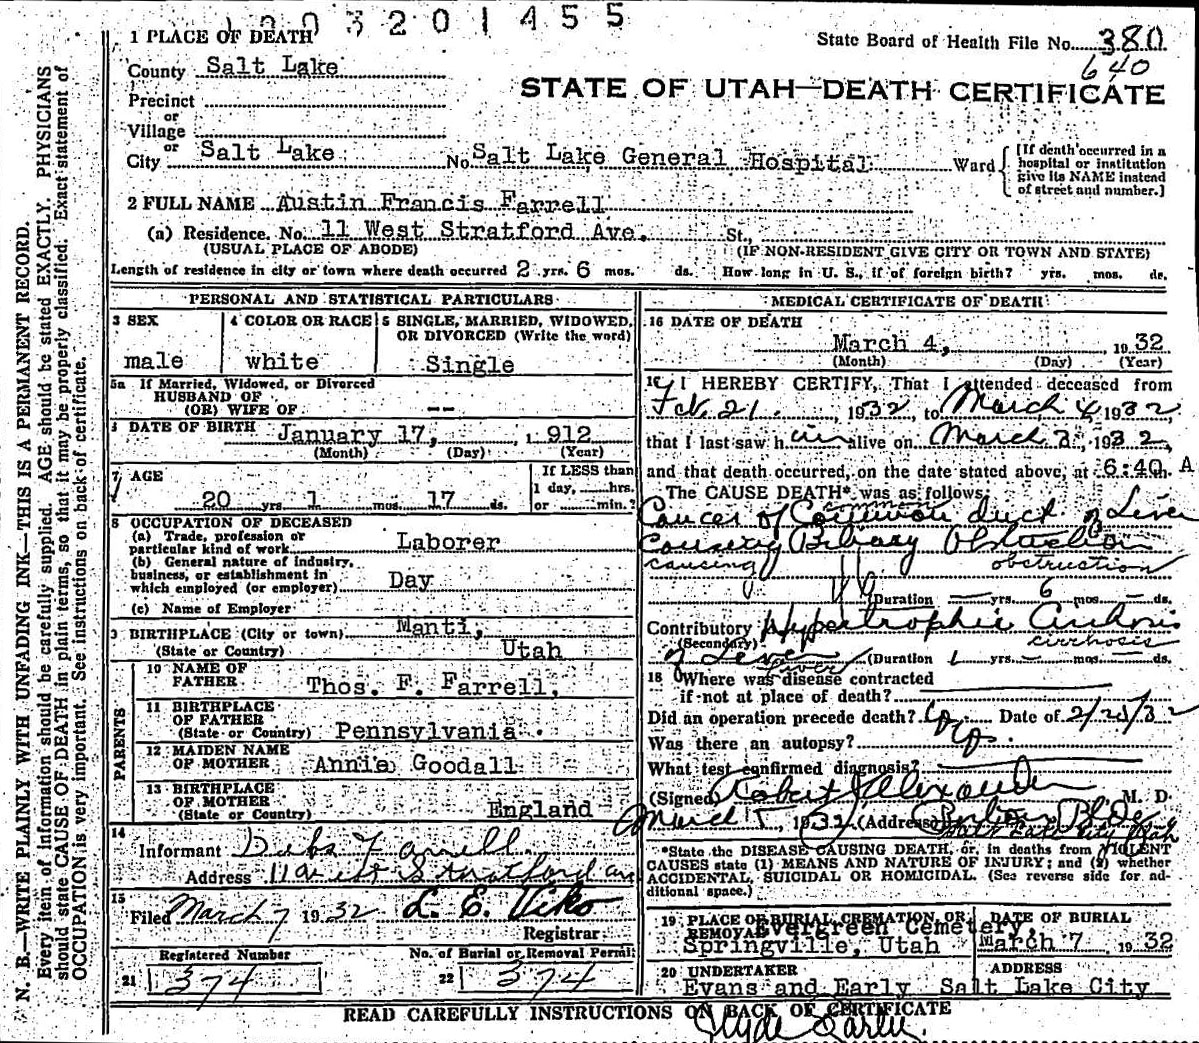 1 PLACE OF DEATH
State Board of Health File No. 380
640
County Salt Lake
STATE OF UTAH—DEATH CERTIFICATE
Precinct
or
Village
or
City Salt Lake No. Salt Lake General Hospital Ward
[If death occurred in a
hospital or institution
give its NAME instead
of street and number.]
2 FULL NAME Austin Francis Farrell
(a) Residence. No. 11 West Stratford Ave. St.,
(USUAL PLACE OF ABODE) (IF NON-RESIDENT GIVE CITY OR TOWN AND STATE)
Length of residence in city or town where death occurred 2 yrs. 6 mos. ds. How long in U. S., if of foreign birth? yrs. mos. ds.
N. B.—WRITE PLAINLY WITH UNFADING INK—THIS IS A PERMANENT RECORD.
Every item of information should be carefully supplied. AGE should be stated EXACTLY. PHYSICIANS
should state CAUSE OF DEATH in plain terms, so that it may be properly classified. Exact statement of
OCCUPATION is very important. See instructions on back of certificate.
PERSONAL AND STATISTICAL PARTICULARS
3 SEX
male
4 COLOR OR RACE
white
5 SINGLE, MARRIED, WIDOWED,
OR DIVORCED (Write the word)
Single
5a If Married, Widowed, or Divorced
HUSBAND OF
(OR) WIFE OF --
DATE OF BIRTH January 17, 1 912
(Month) (Day) (Year)
7 AGE
20 yrs. 1 mos. 17 ds.
If LESS than
1 day, hrs.
or min.?
8 OCCUPATION OF DECEASED
(a) Trade, profession or
particular kind of work Laborer
(b) General nature of industry,
business, or establishment in
which employed (or employer) Day
(c) Name of Employer
9 BIRTHPLACE (City or town) Manti,
(State or Country) Utah
PARENTS
10 NAME OF
FATHER Thos. F. Farrell,
11 BIRTHPLACE
OF FATHER
(State or Country) Pennsylvania.
12 MAIDEN NAME
OF MOTHER Annie Goodall
13 BIRTHPLACE
OF MOTHER
(State or Country) England
14
Informant Farrell
Address 11 West Stratford Ave
15
Filed March 7 1932 L. E. Viko
Registrar
Registered Number
21 374
No. of Burial or Removal Permit
22 374
MEDICAL CERTIFICATE OF DEATH
16 DATE OF DEATH
March 4, 1932
(Month) (Day) (Year)
I HEREBY CERTIFY, That I attended deceased from
Feb. 21. 1932, to March 4, 1932,
that I last saw him alive on March 3, 1932,
and that death occurred, on the date stated above, at 6:40 m. A
The CAUSE DEATH* was as follows
common
Cancer of Common duct of Liver
causing Biliary Obstruction
causing obstruction
(Duration — yrs. 6 mos. — ds.
Contributory Hypertrophic Cirrhosis
(Secondary) cirrhosis
of Liver (Duration 1 yrs. — mos. — ds.
liver
18 Where was disease contracted
if not at place of death?
Did an operation precede death? Date of 2/25/32
Was there an autopsy?
What test confirmed diagnosis?
(Signed) Robert Alexander M. D.
March 5, 1932 (Address) Bldg
Salt Lake City Utah
*State the DISEASE CAUSING DEATH, or, in deaths from VIOLENT
CAUSES state (1) MEANS AND NATURE OF INJURY; and (2) whether
ACCIDENTAL, SUICIDAL OR HOMICIDAL. (See reverse side for ad-
ditional space.)
19 PLACE OF BURIAL, CREMATION, OR
REMOVAL Evergreen Cemetery,
Springville, Utah
DATE OF BURIAL
March 7 1932
20 UNDERTAKER
Evans and Early
ADDRESS
Salt Lake City
READ CAREFULLY INSTRUCTIONS ON BACK OF CERTIFICATE
Clyde Early.